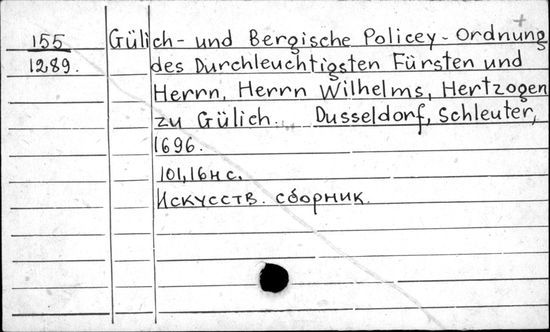 155 Gülich- und Bergische Policey-Ordnung
1289. des Durchleuchtigsten Fürsten und
Herrn, Herrn Wilhelms, Hertzogen
zu Gülich. Dusseldorf, Schleuter,
1696.
101,16 н с.
Искусств. сборник.